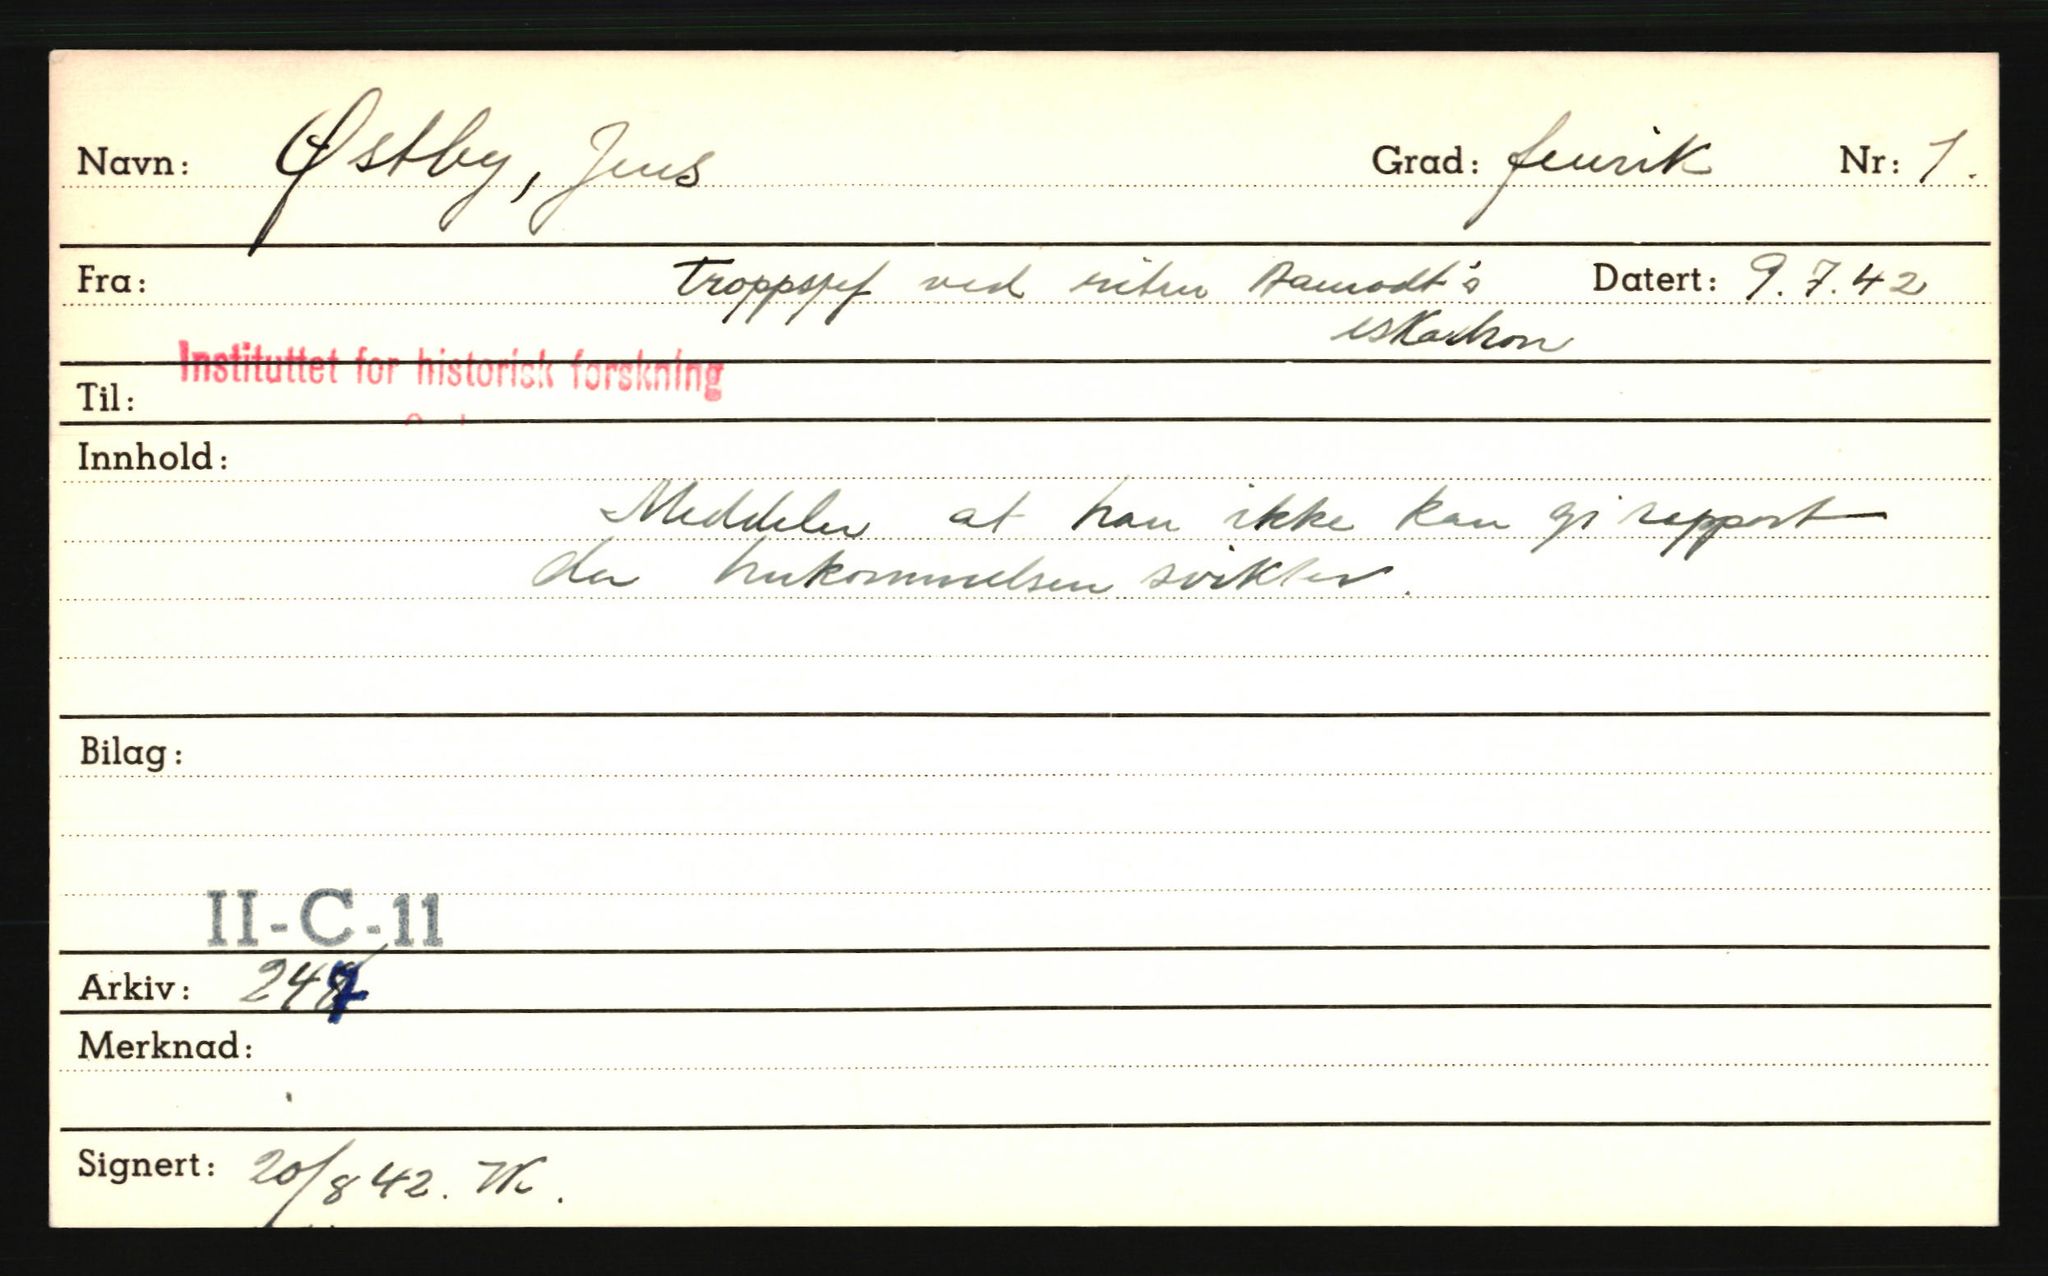 Navn: Østby, Jens Grad: fenrik Nr: 1.
Fra: Troppssjef ved ritm Aamodt's Datert: 9.7.42
eskadron
Instituttet for historisk forskning
Til:
Innhold:
Meddeler at han ikke kan gi rapport
da hukommelsen svikter.
Bilag:
II-C-11
Arkiv: 247
Merknad:
Signert: 20/8 42.